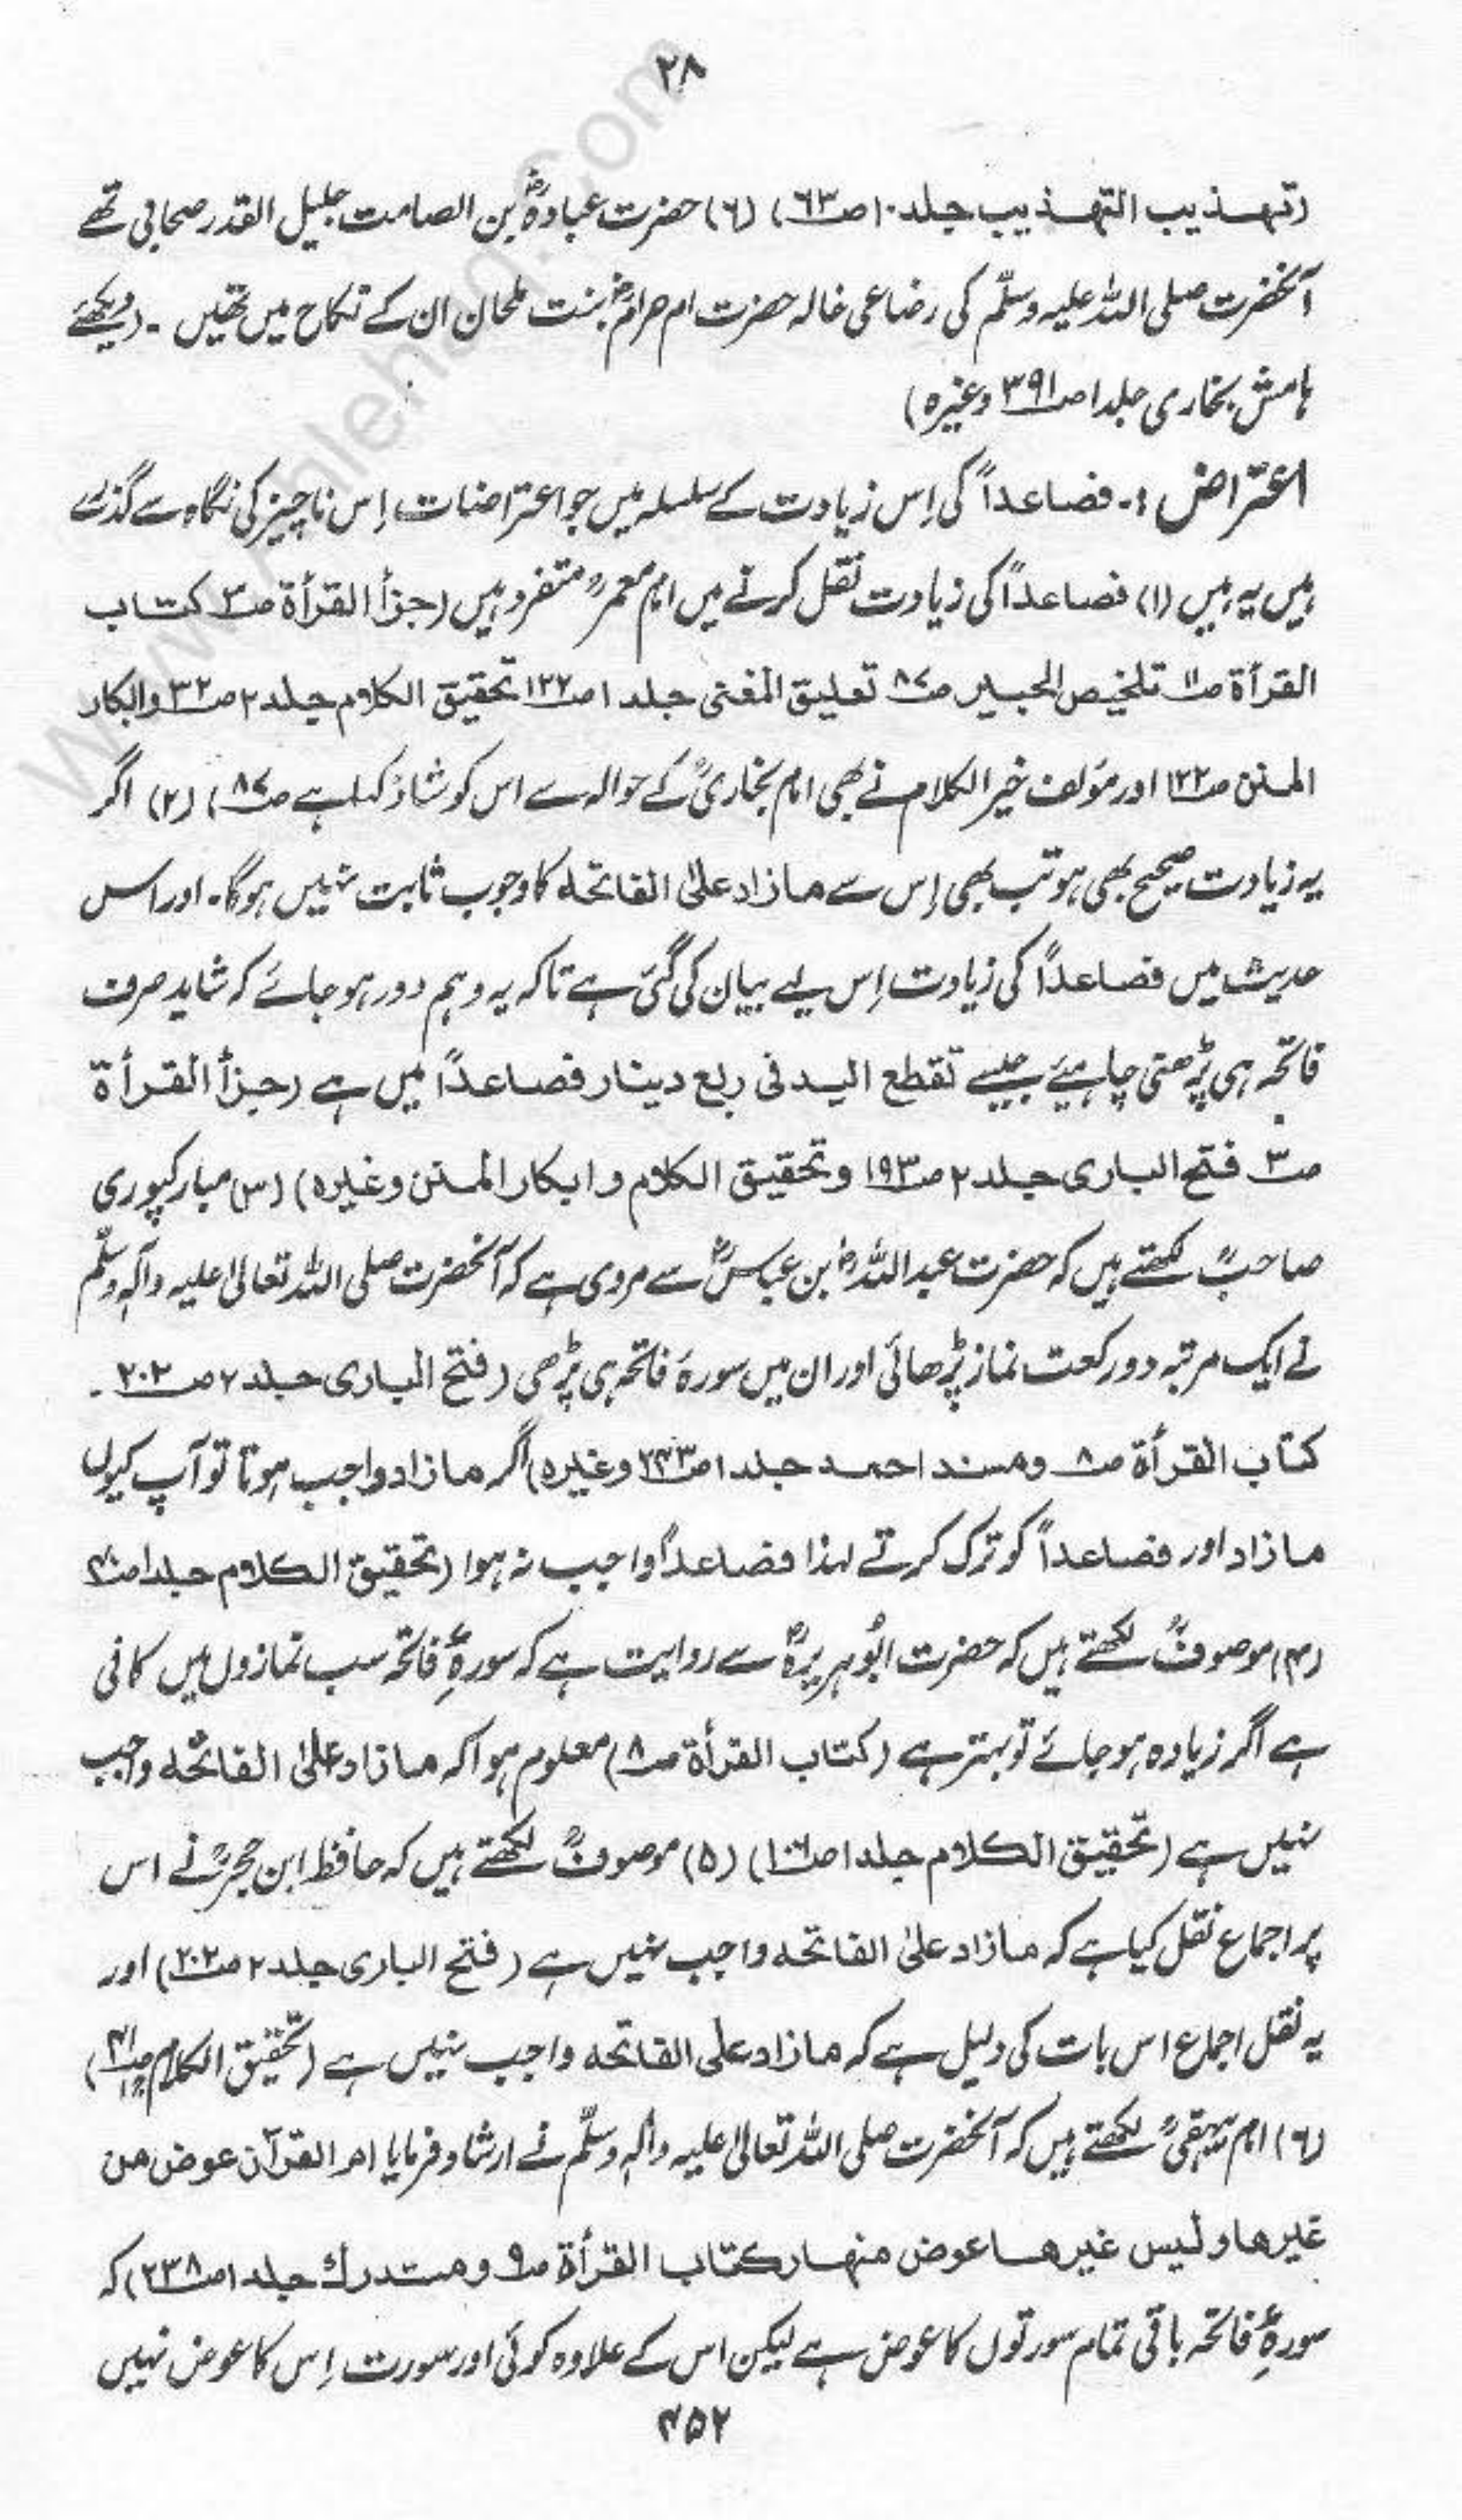 ۲۸
(تہذیب التہذیب جلد ۱۰ ص۶۳) (۶) حضرت عبادہؓ بن الصامت جلیل القدر صحابی تھے
آنحضرت صلی اللہ علیہ وسلّم کی رضاعی خالہ حضرت ام حرامؓ بنت ملحان ان کے نکاح میں تھیں ۔ (دیکھئے
ہامش بخاری جلد۱ ص۳۹۱ وغیرہ)
اعتراض :- فصاعداً کی اِس زیادت کے سلسلہ میں جو اعتراضات اِس ناچیز کی نگاہ سے گذرے
ہیں یہ ہیں (۱) فصاعداً کی زیادت نقل کرنے میں امام معمرؒ متفرد ہیں (جزأ القرأة ص۳ کتاب
القرأة ص۱۱ تلخیص الحبیر ص۸۷ تعلیق المغنی جلد ۱ ص۱۲۲ تحقیق الکلام جلد ۲ ص۳۲ وابکار
المنن ص۱۲۲ اور مؤلف خیر الکلام نے بھی امام بخاریؒ کے حوالہ سے اس کو شاذ کہا ہے ص۸۷) (۲) اگر
یہ زیادت صحیح بھی ہو تب بھی اِس سے مازاد علیٰ الفاتحہ کا وجوب ثابت نہیں ہوگا۔ اور اس
حدیث میں فصاعداً کی زیادت اِس لیے بیان کی گئی ہے تاکہ یہ وہم دور ہو جائے کہ شاید صرف
فاتحہ ہی پڑھنی چاہیئے جیسے تقطع الید فی ربع دینار فصاعداً میں ہے (جزأ القرأة
ص۳ فتح الباری جلد ۲ ص۱۹۳ وتحقیق الکلام و ابکار المنن وغیرہ) (۳) مبارکپوری
صاحبؒ لکھتے ہیں کہ حضرت عبداللہؓ بن عباسؓ سے مروی ہے کہ آنحضرت صلی اللہ تعالیٰ علیہ وآلہٖ وسلّم
نے ایک مرتبہ دو رکعت نماز پڑھائی اور ان میں سورۂ فاتحہ ہی پڑھی (فتح الباری جلد ۲ ص۲۰۲ ۔
کتاب القرأة ص۸ ومسند احمد جلد ۱ ص۲۴۳ وغیرہ) اگر مازاد واجب ہوتا تو آپ کیوں
مازاد اور فصاعداً کو ترک کرتے لہذا فصاعداً واجب نہ ہوا (تحقیق الکلام جلد۱ ص۴۰
(۴) موصوفؒ لکھتے ہیں کہ حضرت ابُوہریرہؓ سے روایت ہے کہ سورۂ فاتحہ سب نمازوں میں کافی
ہے اگر زیادہ ہو جائے تو بہتر ہے (کتاب القرأة ص۸) معلوم ہوا کہ مازاد علیٰ الفاتحہ واجب
نہیں ہے (تحقیق الکلام جلد ۱ ص۱۰) (۵) موصوفؒ لکھتے ہیں کہ حافظ ابن حجرؒ نے اس
پر اجماع نقل کیا ہے کہ مازاد علیٰ الفاتحہ واجب نہیں ہے (فتح الباری جلد ۲ ص۲۰۲) اور
یہ نقل اجماع اس بات کی دلیل ہے کہ مازاد علی الفاتحہ واجب نہیں ہے (تحقیق الکلام ص۴۱)
(۶) امام بیہقیؒ لکھتے ہیں کہ آنحضرت صلی اللہ تعالیٰ علیہ وآلہٖ وسلّم نے ارشاد فرمایا ام القرآن عوض من
غیرھا ولیس غیرھا عوض منھا (کتاب القرأة ص۹ ومستدرك جلد ۱ ص۲۳۸) کہ
سورۂ فاتحہ باقی تمام سورتوں کا عوض ہے لیکن اس کے علاوہ کوئی اور سورت اِس کا عوض نہیں
۴۵۲